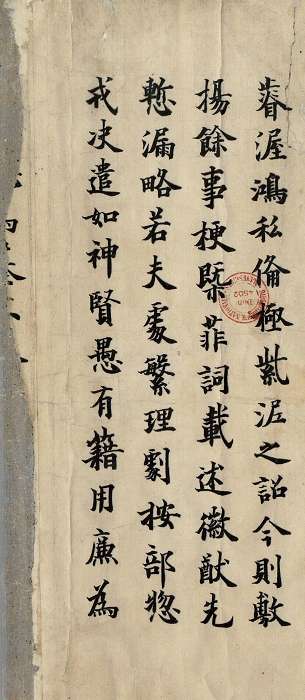 睿渥鴻私俻極紫泥之詔今則敷
揚餘事梗槩菲詞載述徽猷先
慙漏略若夫處繁理劇按部惣
戎决遣如神賢愚有籍用廉為